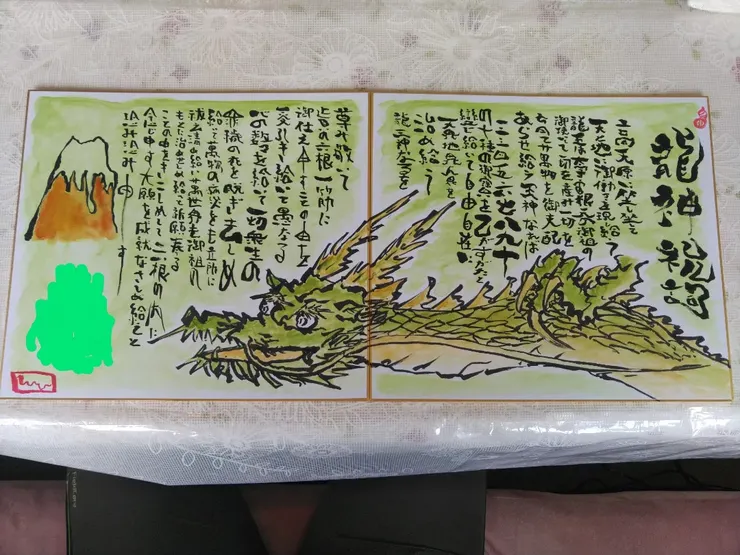 龍神祝詞
高天原に坐し坐して
天と地に御働きを現し給う
龍王は大宇宙根元の御祖の
御使いにして一切を産み一切を
育て万物を御支配
あらせ給う王神なれば
一二三四五六七八九十
の十種の御寶を己がすがたと
變じ給いて自由自在に
天界地界人界を
治め給う
龍王神なるを
尊み敬いて
眞の六根一筋に
御仕え申すことの由を
受引き給いて愚なる
心の数々を戒め給いて一切衆生の
罪穢の衣を脱ぎ去らしめ
給いて萬物の病災をも立所に
祓い清め給い萬世界も御祖の
もとに治めせしめ給へと祈願奉る
ことの由をきこしめして六根の内に
念じ申す大願を成就なさしめ給へと
恐み恐み申す